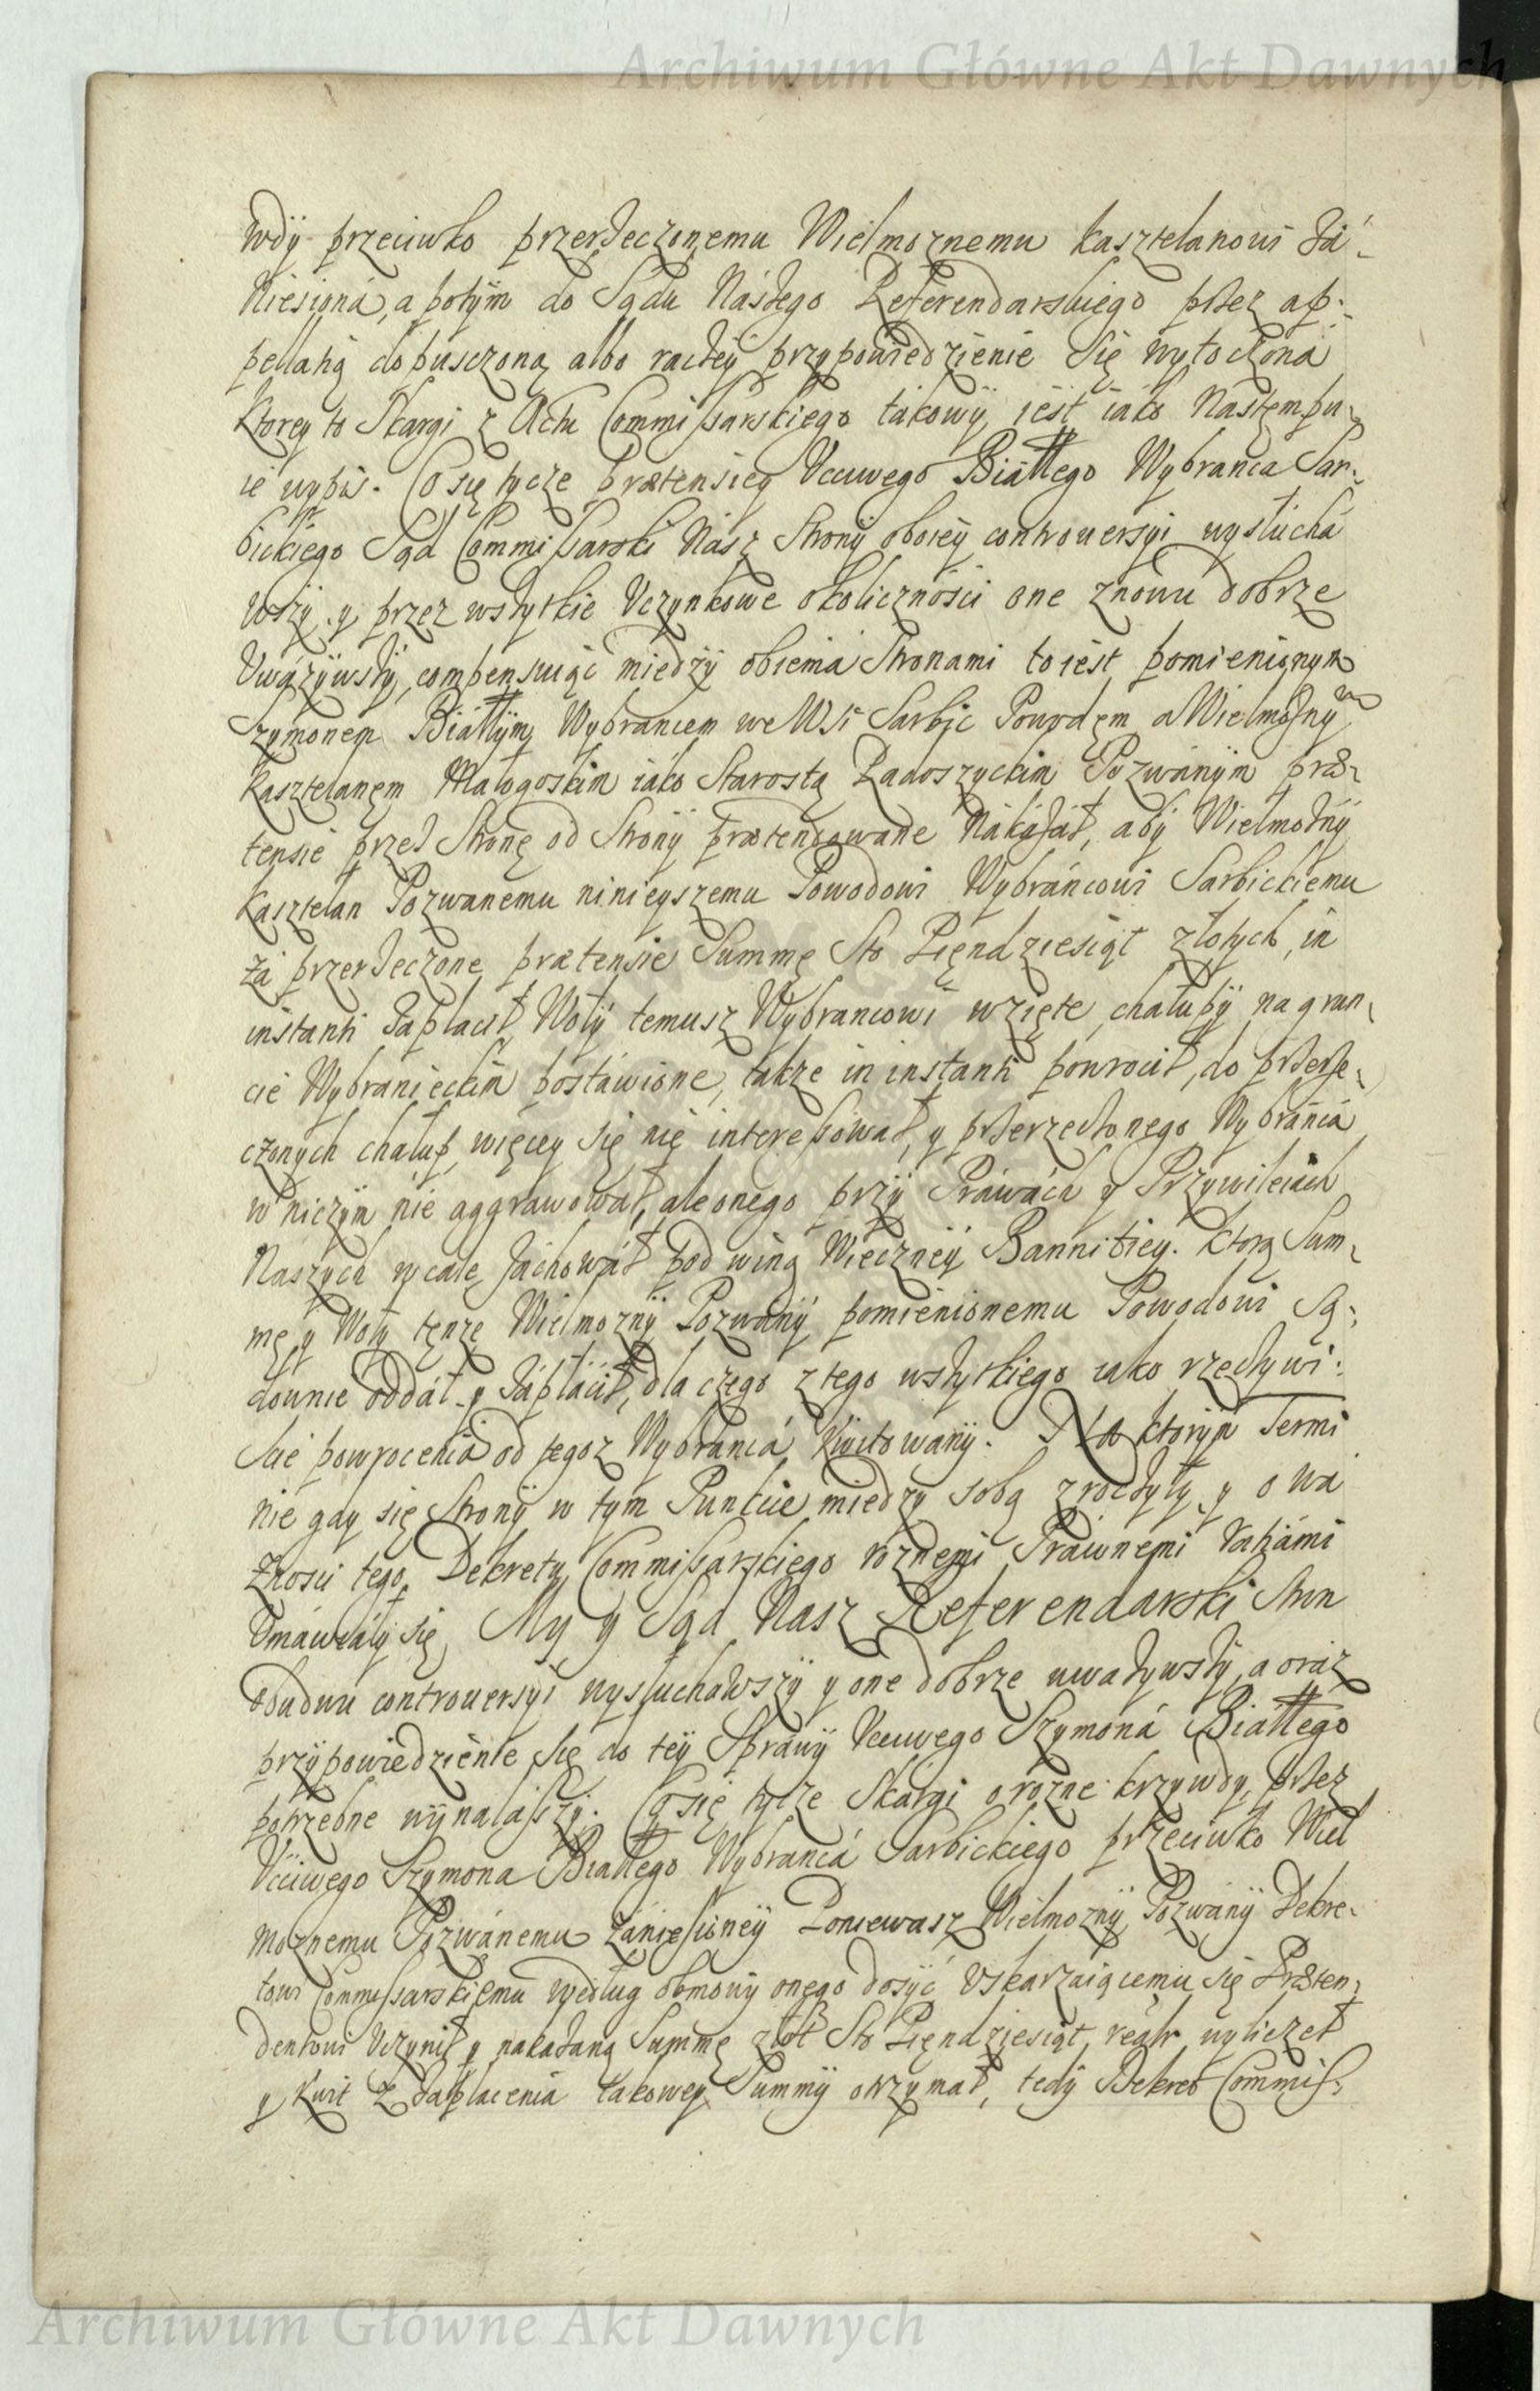 Archiwum Główne Akt Dawnych
wdÿ przeciwko przerzeczonemu Wielmoznemu Kasztelanowi Zá-
niesioná, a potÿm do Sądu Nászego Referendarskiego przez ap-
pellatią dopusczoną albo raczéÿ przypowiedzienie się wytoczoná
Ktorey to Skargi z Actu Commissarskiego tákowÿ iest iáko Nastempu-
ie wypis. Co się tycze prætensiey Vcciwego Biáłłego Wybranca Sar-
bickiego Sąd Commissarski Nász Stronÿ oboiéÿ controuersyi wysłuchá
wszy y przez wszytkie Vczynkowe okolicznósci one znowu dobrze
Vwáżywszÿ, compensuiąc miedzÿ obiema Stronami to iest pomienionym
Szymonem Biáłłÿm Wybrancem we Wsi Sarbic Powodem a Wielmożnÿm
Kasztelanem Małogoskim iáko Starostą Radoszyckim Pozwánÿm præ-
tensie przez Stronę od Stronÿ prætendowane Nákazał, abÿ Wielmożnÿ
Kasztelan Pozwanemu ninieyszemu Powodowi Wybráncowi Sarbickiemu
zá przerzeczone prætensie Summę Sto Pięndziesiąt złotych in
instanti Zapłacił, Wołÿ temusz Wybrancowi wzięte, chałupÿ na grun-
cie Wybranieckim postáwione, także in instanti powrocił, do przerze-
czonych chałup więcey się nie interessował, y przerzeczonego Wybráncá
w niczÿm nie aggrawował, ale onego przÿ Práwách y Przywileiách
Nászych wcale záchowáł pod winą Wiecznéÿ Bannitiey. Ktorą Sum-
mę y Wołÿ tenże Wielmoznÿ Pozwanÿ pomienionemu Powodowi Są-
downie oddáł y Zápłácił, dla czego z tego wszytkiego iako rzeczywi-
scie powrocenia od tegoz Wybráncá Kwitowanÿ. Na ktorÿm Termi
nie gdy się Stronÿ w tÿm Punkcie miedzy sobą zroczyły y o wá
żnosci tego Dekretu Commissarskiego roznemi Práwnemi Ratiámi
Vmáwiáły się, My y Sąd Nasz Referendarski Stron
obudwu controuersyi wysłuchawszÿ y one dobrze uważywszÿ, a oraz
przÿpowiedzienie się do teÿ Spráwÿ Vcciwego Szymoná Biáłłego
potrzebne wÿnalaszszÿ. Co się tycze Skárgi o rozne krzywdy przez
Vcciwego Szymona Białłego Wybráncá Sarbickiego przeciwko Wiel
moznemu Pozwánemu zániesionéÿ Poniewasz Wielmoznÿ Pozwánÿ Dekre-
towi Commissarskiemu według obmowÿ onego dosÿć Vskarzaiącemu się Præten-
dentowi Vczynił y nakazaną Summę złotł Sto Pięndziesiąt realr wyliczeł
y Kwit z Zapłacenia takowey Summÿ otrzymał, tedÿ Dekret Commiss-
Archiwum Główne Akt Dawnych